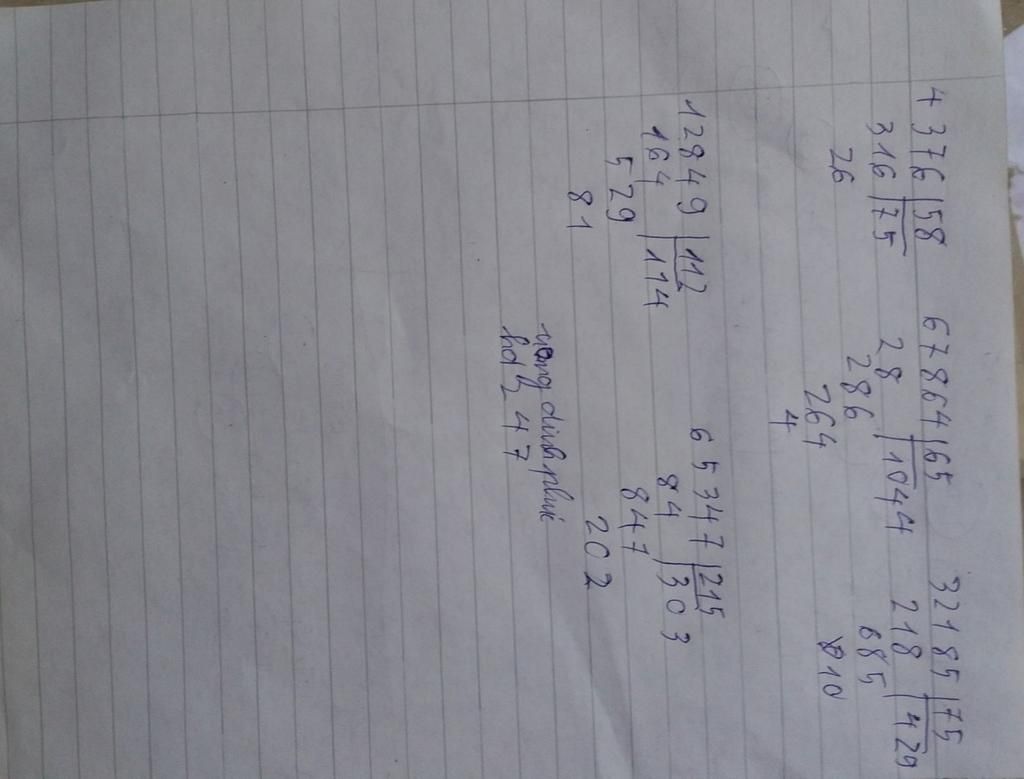 4 376 | 58
316 | 75
26
67864 | 65
28 | 1044
286
264
4
32185 | 75
218 | 429
685
10
12849 | 112
164 | 114
529
81
65347 | 215
84 | 303
847
202
47